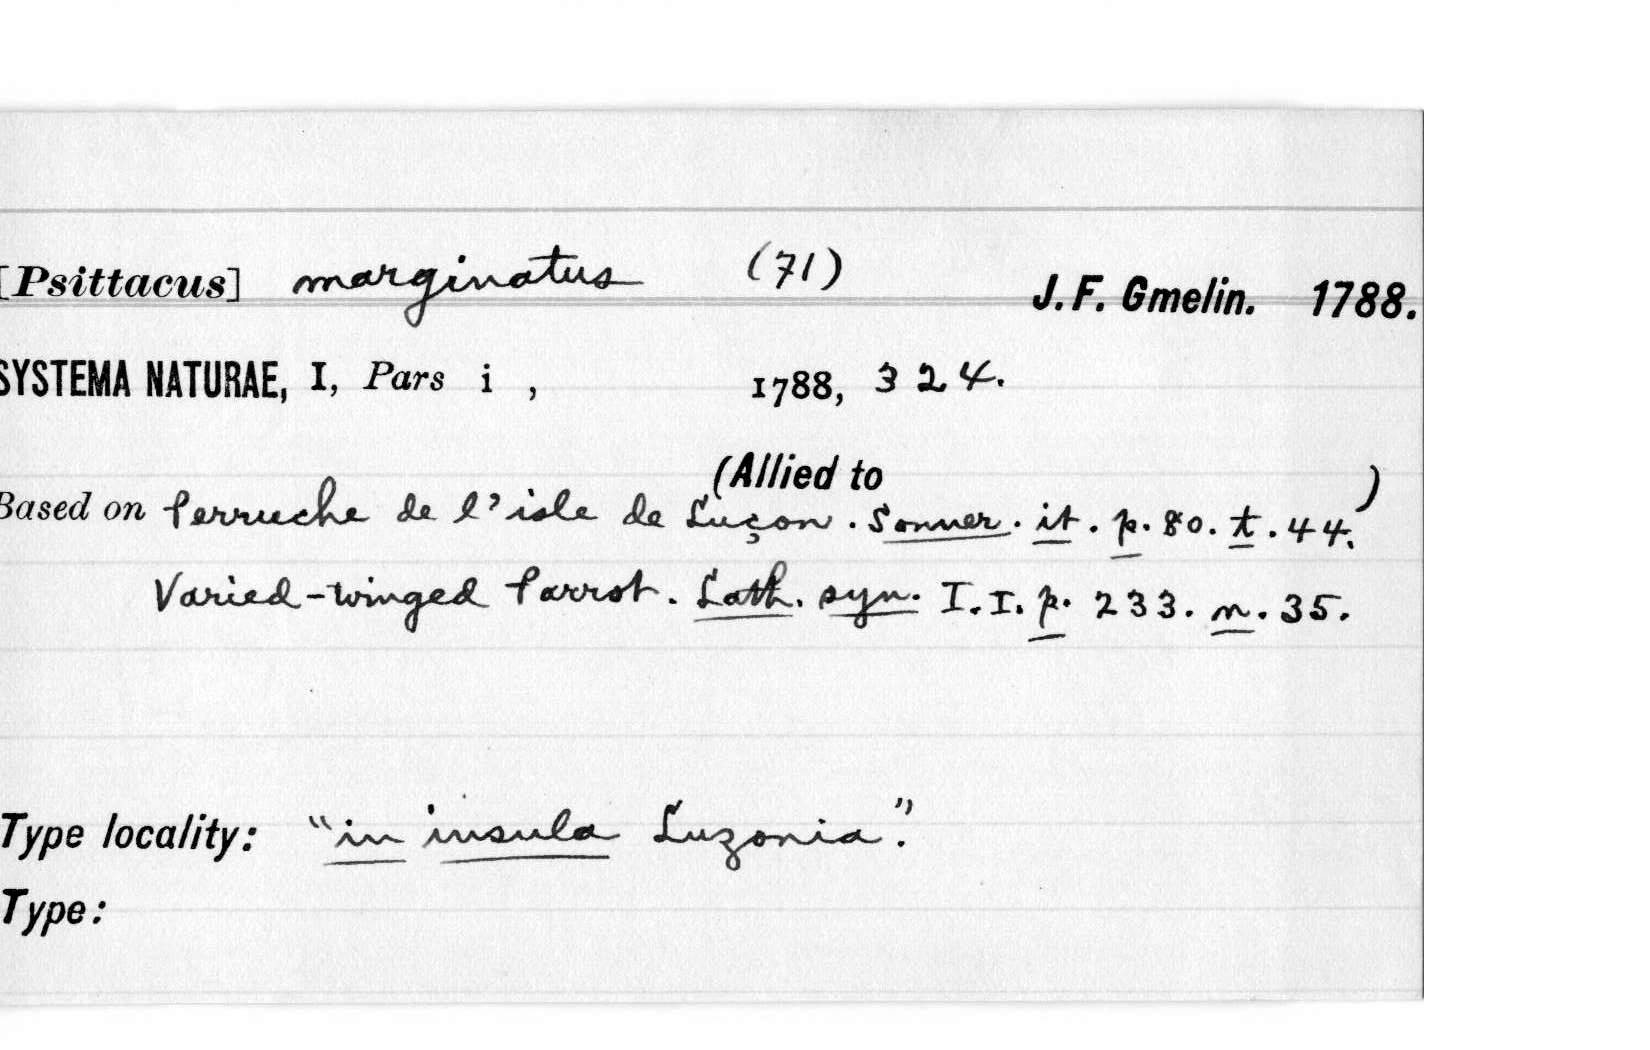 [Psittacus] marginatus (71) J. F. Gmelin. 1788.
SYSTEMA NATURAE, I, Pars i , 1788, 324.
(Allied to )
Based on Perruche de l'isle de Luçon. Sonner. it. p. 80. t. 44.
Varied-winged Parrot. Lath. syn. I.I. p. 233. n. 35.
Type locality: "in insula Luzonia".
Type: